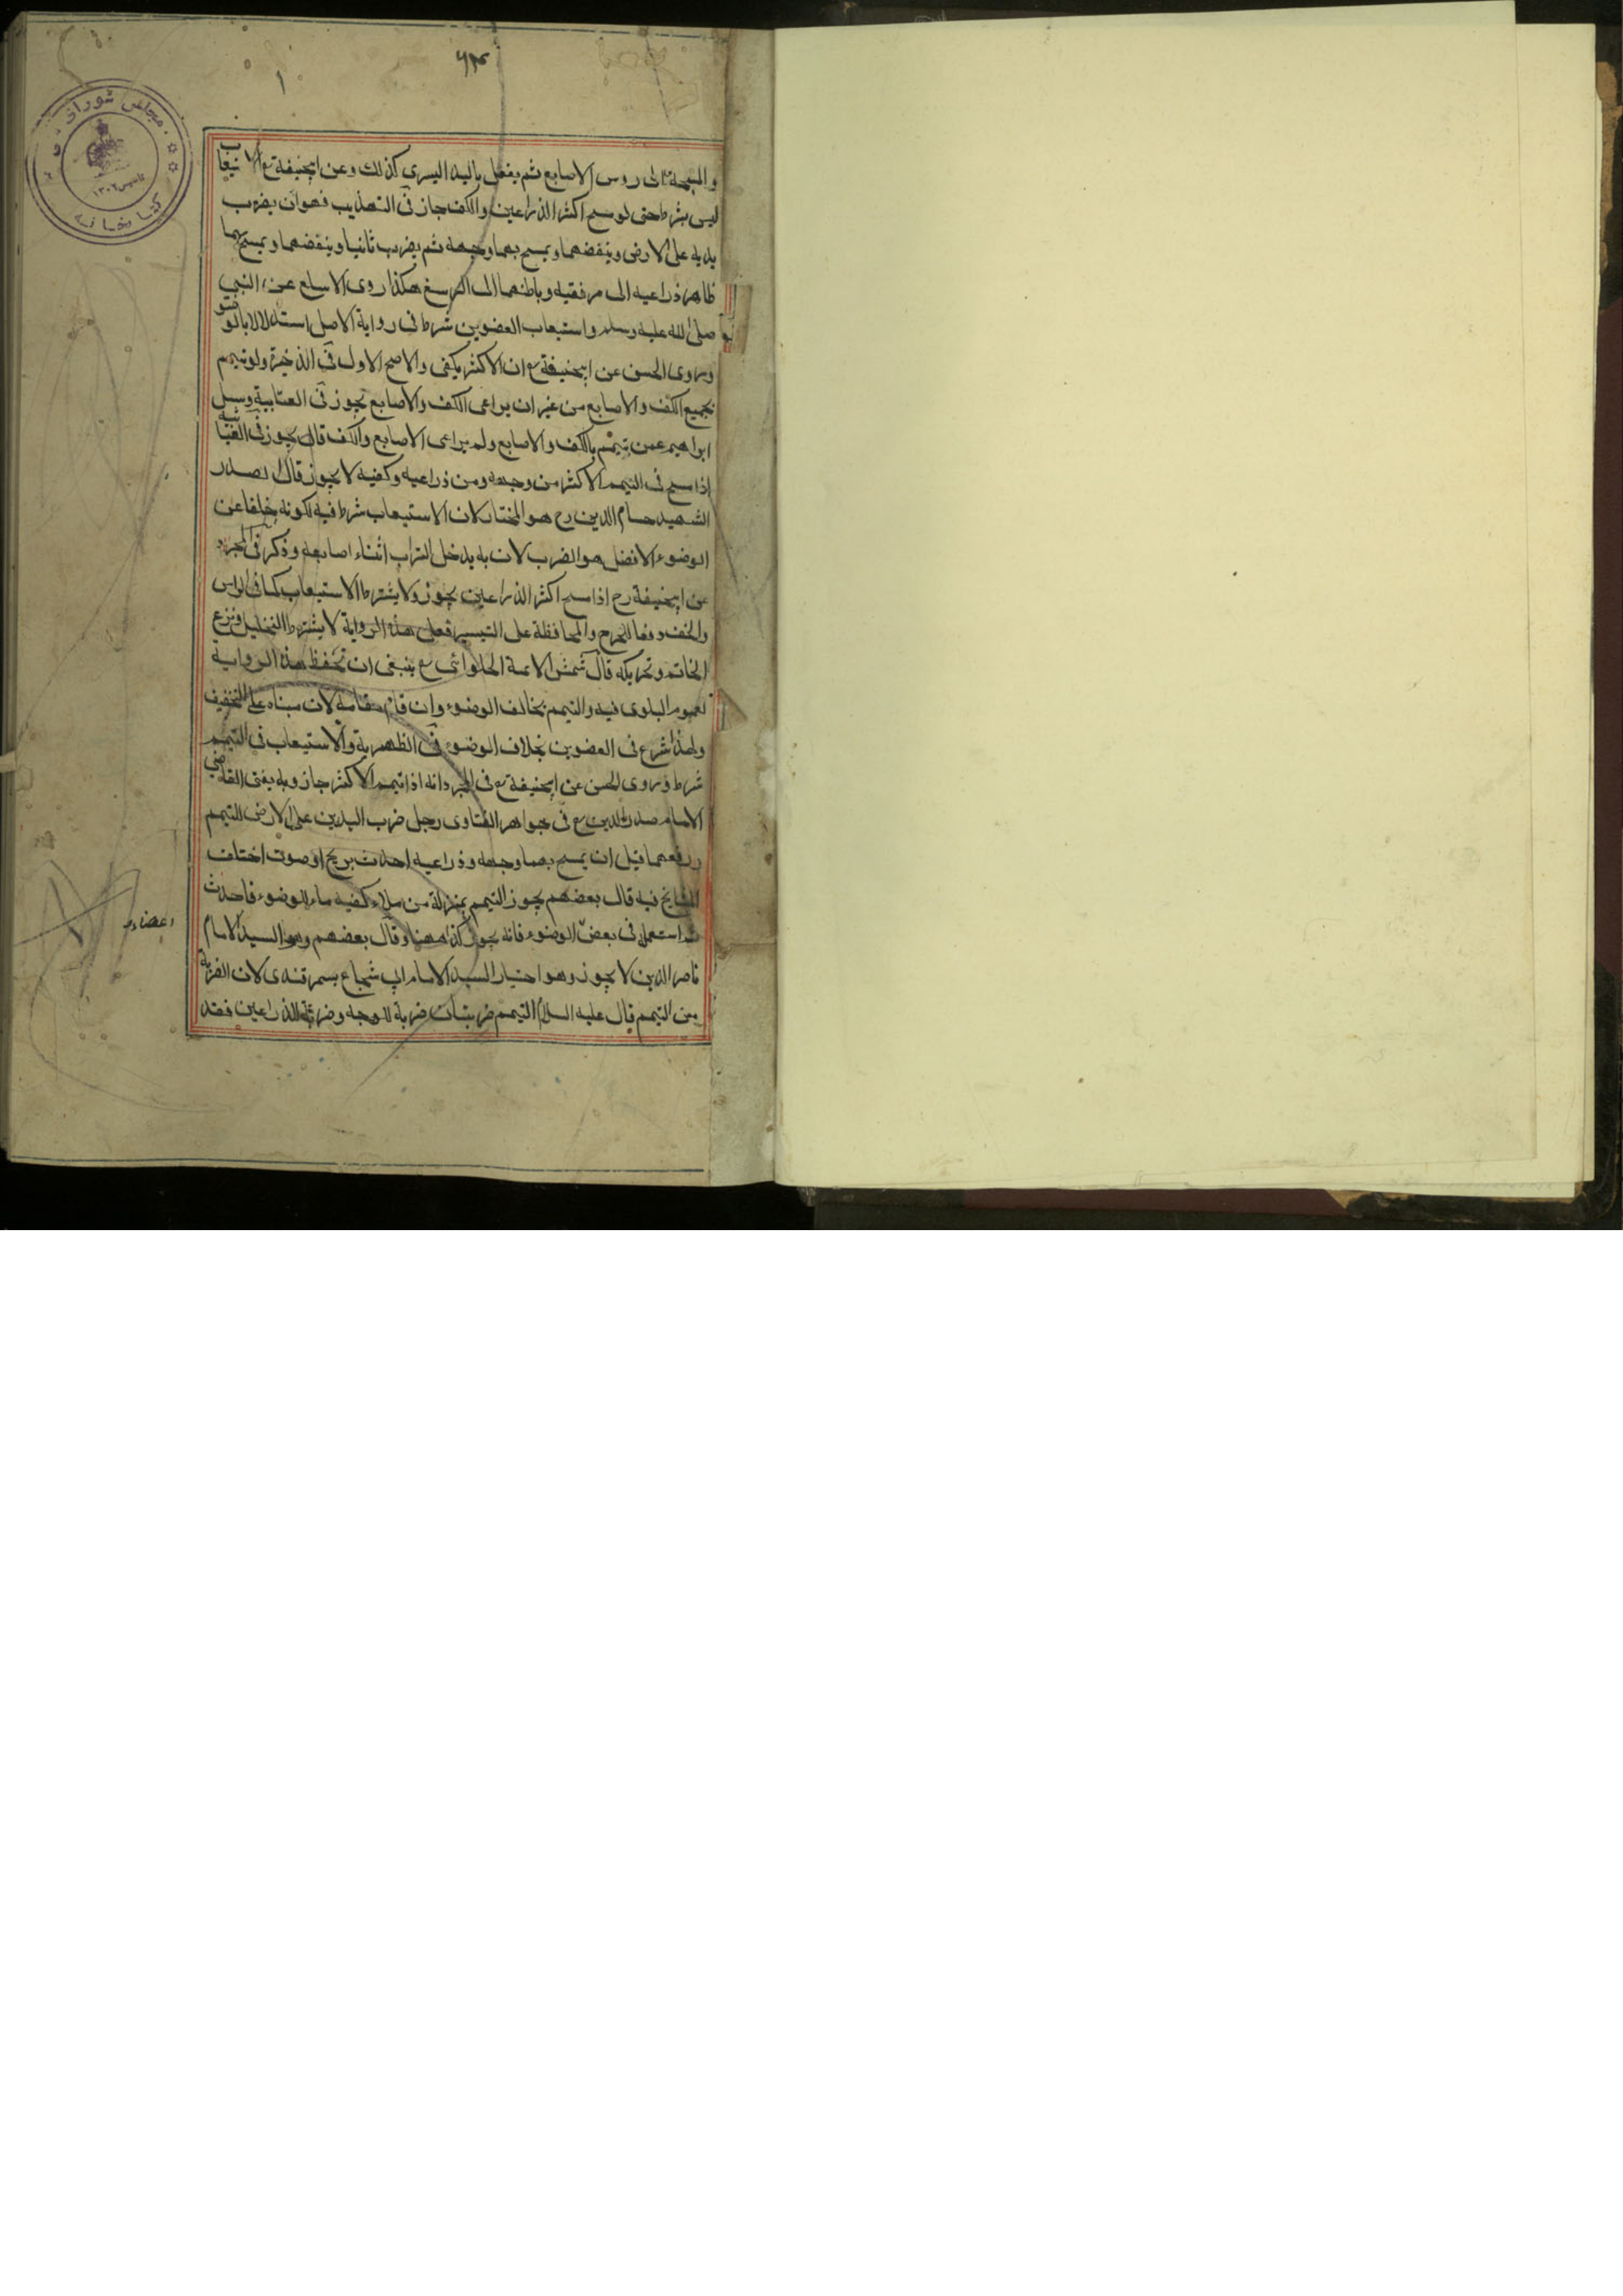 ۶۲۴
۱
مجلس شورای
کتابخانه
تاسیس ۱۳۰۲
والمسبحة الی روس الاصابع ثم یفعل بالید الیسری کذلک وعن ابیحنیفة رح الاستیعاب
لیس بشرط حتی لو مسح اکثر الذراعین والکف جاز فی التهذیب فهو ان یضرب
یدیه علی الارض وینفضهما ویمسح بهما وجهه ثم یضرب ثانیا وینفضهما ویمسح بهما
ظاهر ذراعیه الی مرفقیه وباطنهما الی الرسغ هکذا روی الاسلع عن النبی
صلی الله علیه وسلم واستیعاب العضوین شرط فی روایة الاصل استدلالا بالوضو
وروی الحسن عن ابیحنیفة رح ان الاکثر یکفی والاصح الاول فی الذخیرة ولو تیمم
بجمیع الکف والاصابع من غیر ان یراعی الکف والاصابع یجوز فی العتابیة وسیل
ابراهیم عمن تیمم بالکف والاصابع ولم یراعی الاصابع والکف قال یجوز فی الغیاثیة
اذا مسح فی التیمم الاکثر من وجهه ومن ذراعیه وکفیه لا یجوز قال الصدر
الشهید حسام الدین رح هو المختار لان الاستیعاب شرط فیه لکونه خلفا عن
الوضوء الافضل هو الضرب لان به یدخل التراب اثناء اصابعه وذکر فی المجرد
عن ابیحنیفة رح اذا مسح اکثر الذراعین یجوز ولا یشترط الاستیعاب کما فی الراس
والخف دفعا للحرج والمحافظة علی التیسیر فعلی هذه الروایة لا یشترط التخلیل ونزع
الخاتم وتحریکه قال شمس الائمة الحلوائی رح ینبغی ان تحفظ هذه الروایة
لعموم البلوی فیه والتیمم یخالف الوضوء وان قام مقامه لان مبناه علی التخفیف
ولهذا شرع فی العضوین بخلاف الوضوء فی الظهیریة والاستیعاب فی التیمم
شرط وروی الحسن عن ابیحنیفة رح فی المجرد انه اذا تیمم الاکثر جاز وبه یفتی القاضی
الامام صدر الدین رح فی جواهر الفتاوی رجل ضرب الیدین علی الارض للتیمم
ورفعهما قبل ان یمسح بهما وجهه وذراعیه احدث بریح او صوت اختلف
المشایخ فیه قال بعضهم یجوز التیمم بمنزلة من ملاء کفیه ماء للوضوء فاحدث
ثم استعمل فی بعض الوضوء فانه یجوز کذا ههنا وقال بعضهم وهو السید الامام
اعضاء
ناصر الدین لا یجوز وهو اختیار السید الامام ابی شجاع بسمرقندی لان الضربة
من التیمم قال علیه السلام التیمم ضربتان ضربة للوجه وضربة للذراعین فقد